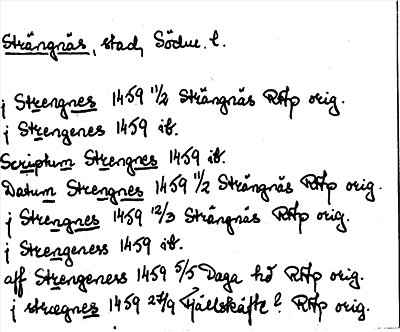 Strängnäs, stad, Södm. l.
j Strengnes 1459 11/2 Strängnäs RAp orig.
j Strengenes 1459 ib.
Scriptum Strengnes 1459 ib.
Datum Strengnes 1459 11/2 Strängnäs RAp orig.
j Strengnes 1459 12/3 Strängnäs RAp orig.
j Strengeness 1459 ib.
aff Strengeness 1459 5/5 Daga hd RAp orig.
j strægnes 1459 27/9 RAp orig.